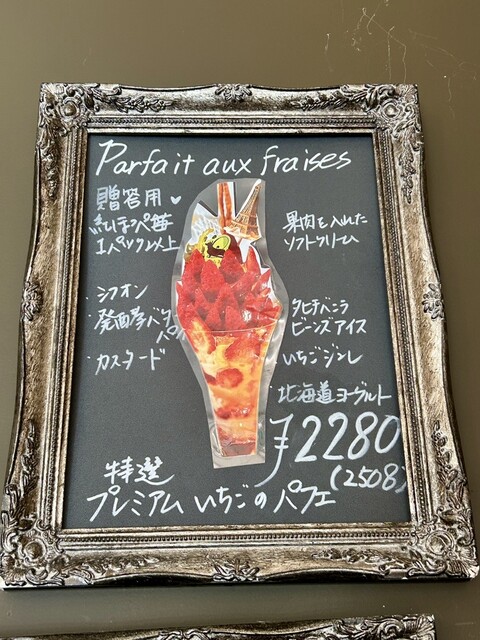 Parfait aux fraises
贈答用♥
紅ほっぺ苺
1パック以上
・シフォン
・発酵バター
パイ
・カスタード
果肉を入れた
ソフトクリーム
タヒチバニラ
ビーンズアイス
いちごジュレ
・北海道ヨーグルト
¥2280
(2508)
特選
プレミアムいちごのパフェ